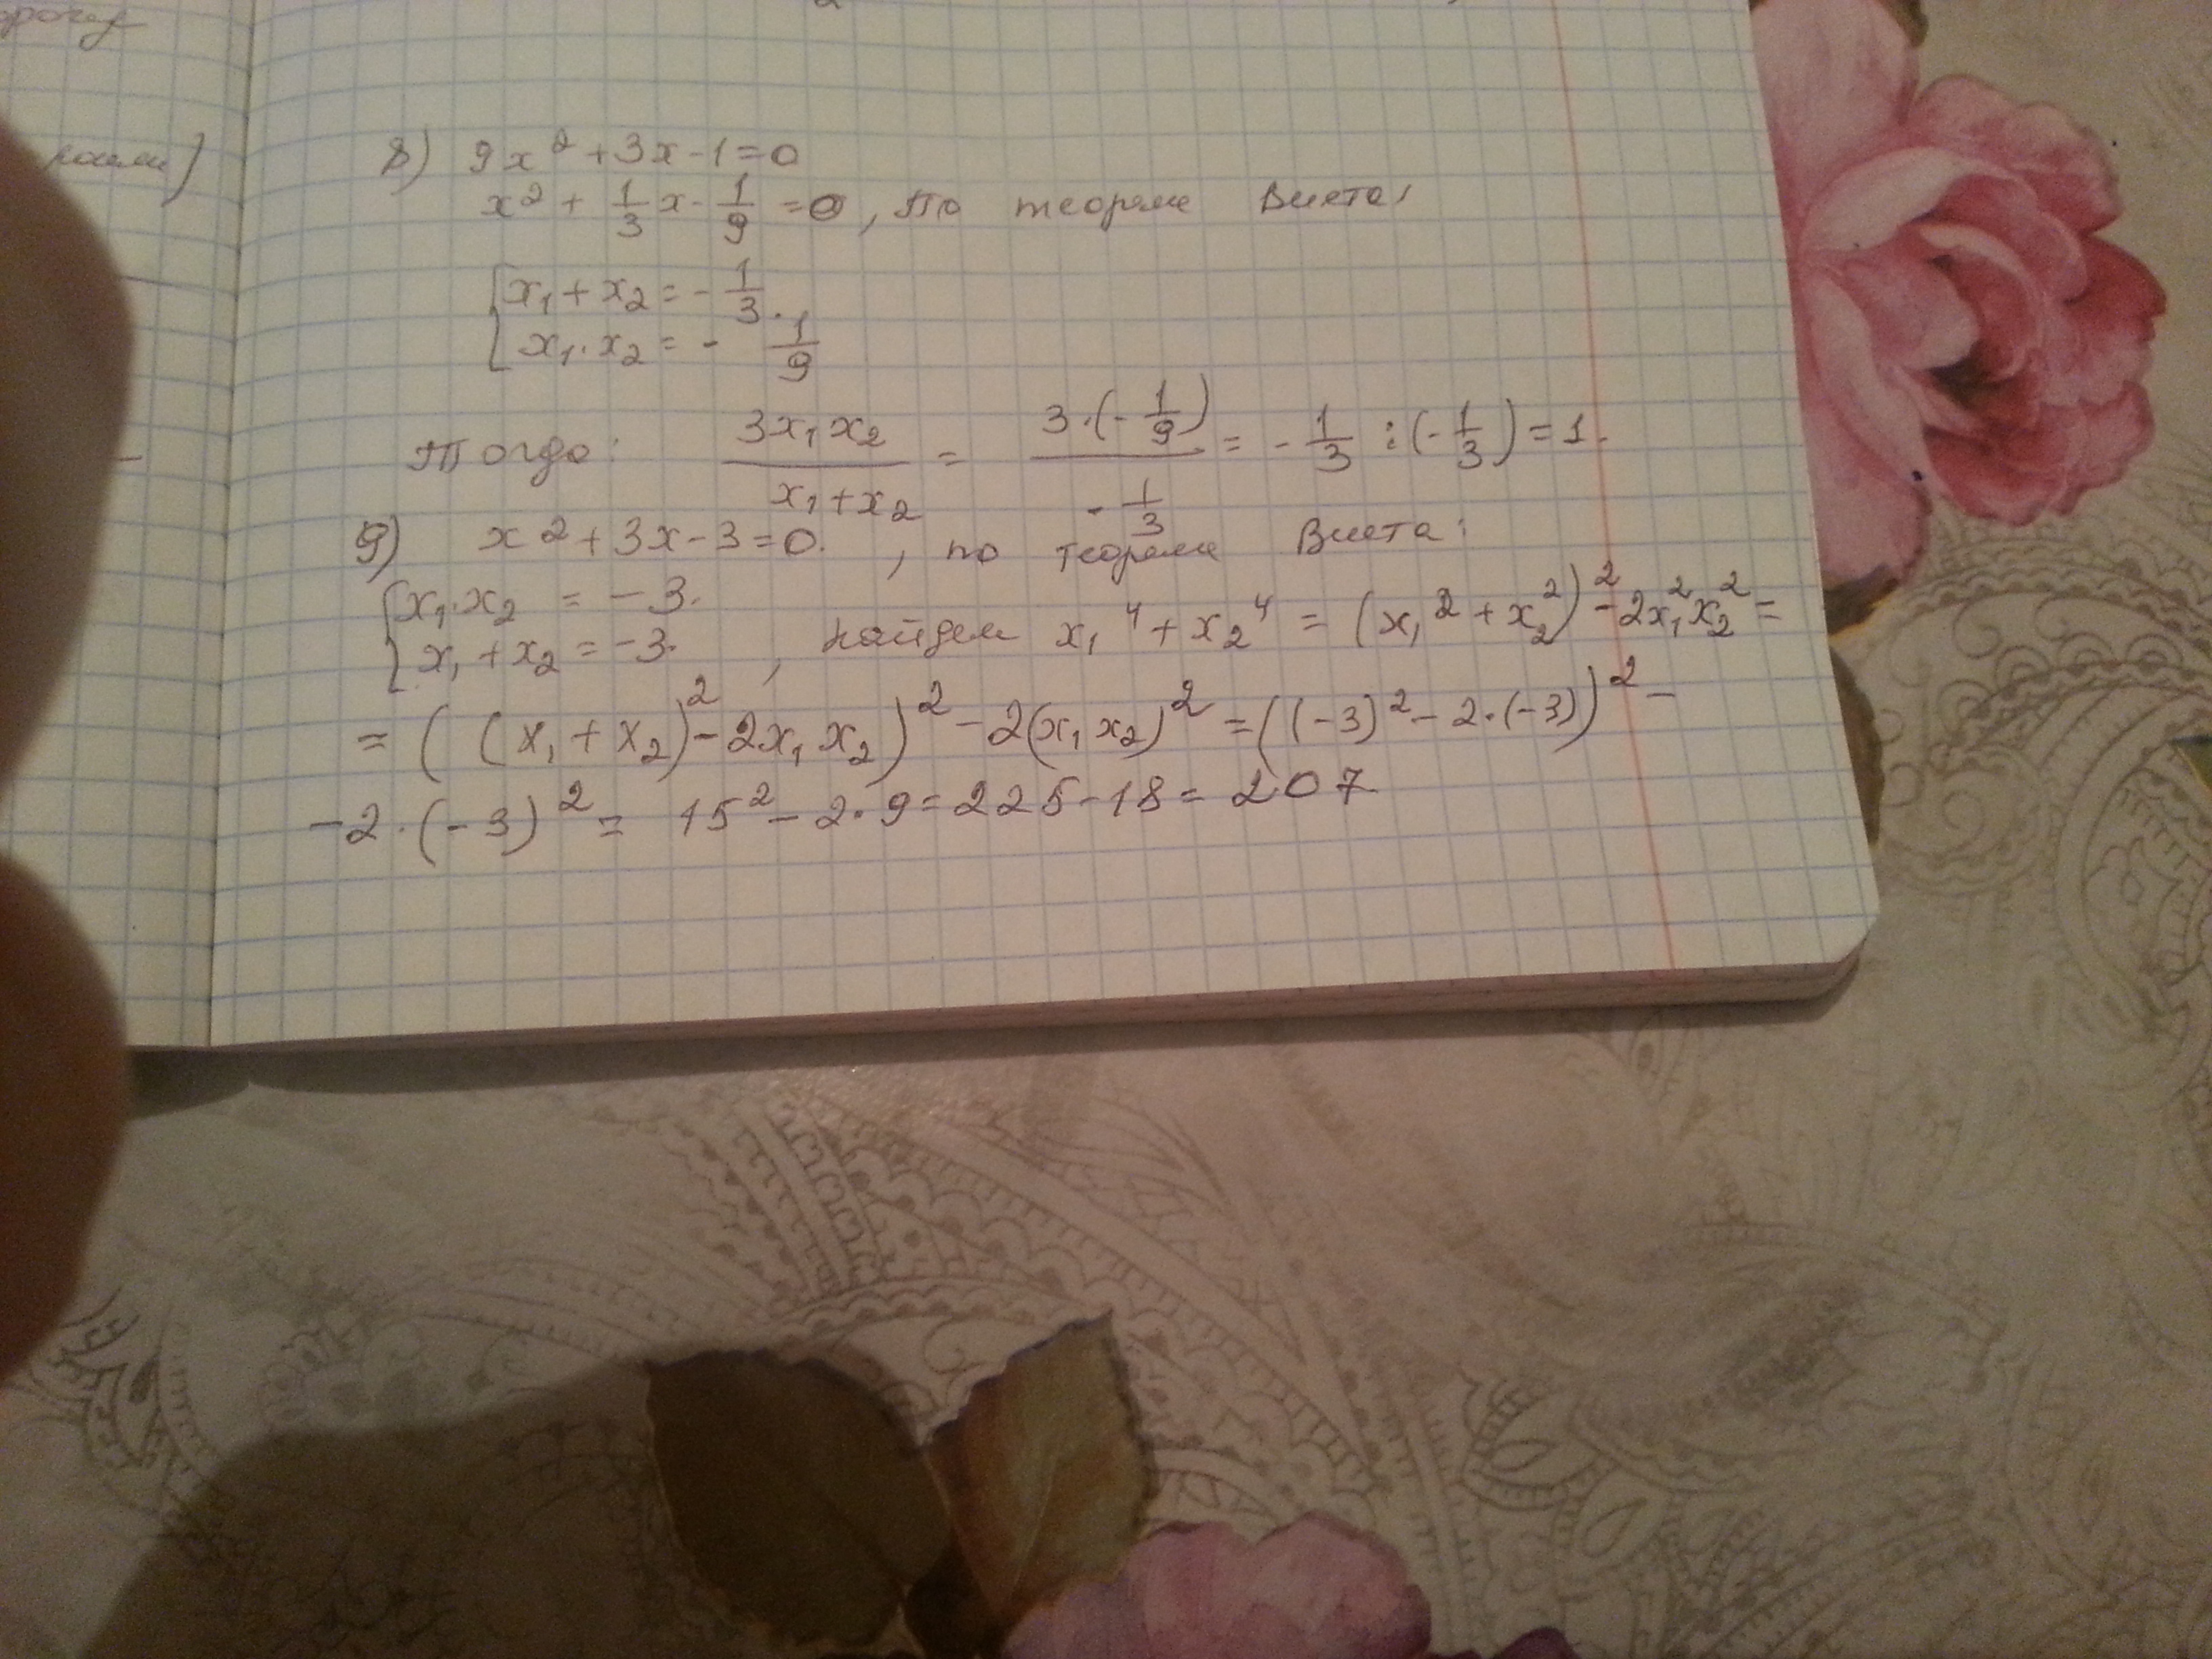 8) 9x² + 3x - 1 = 0
x² + 1/3 x - 1/9 = 0, по теореме Виета:
{ x₁ + x₂ = - 1/3.
x₁ · x₂ = - 1/9
Тогда: 3x₁x₂ / (x₁ + x₂) = 3·(- 1/9) / (- 1/3) = - 1/3 : (- 1/3) = 1.
9) x² + 3x - 3 = 0. , по теореме Виета:
{ x₁·x₂ = -3.
x₁ + x₂ = -3. , найдем x₁⁴ + x₂⁴ = (x₁² + x₂²)² - 2x₁²x₂² =
= ((x₁ + x₂)² - 2x₁x₂)² - 2(x₁x₂)² = ((-3)² - 2·(-3))² -
- 2·(-3)² = 15² - 2·9 = 225 - 18 = 207